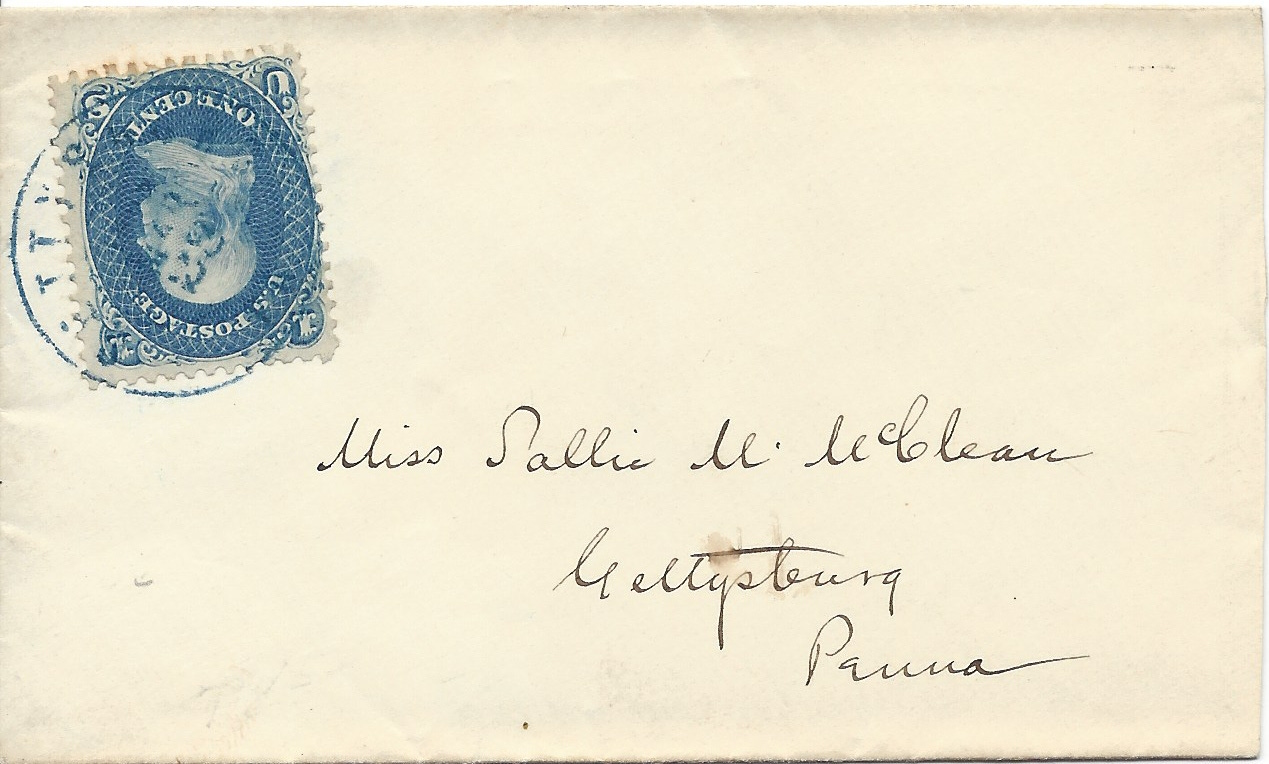 U S
ONE CENT
U.S. POSTAGE
1 1
Miss Sallie M. McClean
Gettysburg
Penna